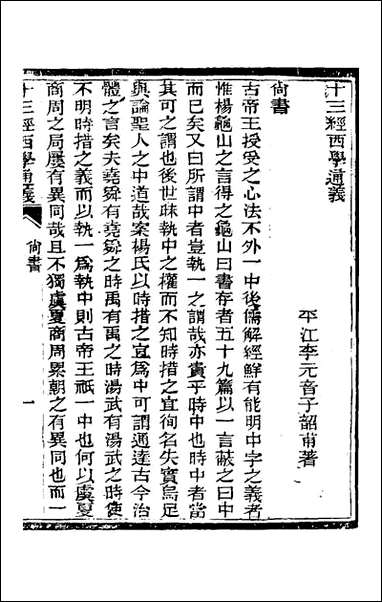 十三經西學通義
平江李元音子韶甫著
尙書
古帝王授受之心法不外一中後儒解經鮮有能明中字之義者
惟楊龜山之言得之龜山曰書存者五十九篇以一言蔽之曰中
而巳矣又曰所謂中者豈執一之謂哉亦貴乎時中也時中者當
其可之謂也後世昧執中之權而不知時措之宜徇名失實烏足
與論聖人之中道哉案楊氏以時措之宜爲中可謂通達古今治
體之言矣夫堯舜有堯舜之時禹有禹之時湯武有湯武之時使
不明時措之義而以執一爲執中則古帝王祇一中也何以虞夏
商周之局屢有異同哉且不獨虞夏商周累朝之有異同也而一
十三經西學通義
尙書
一